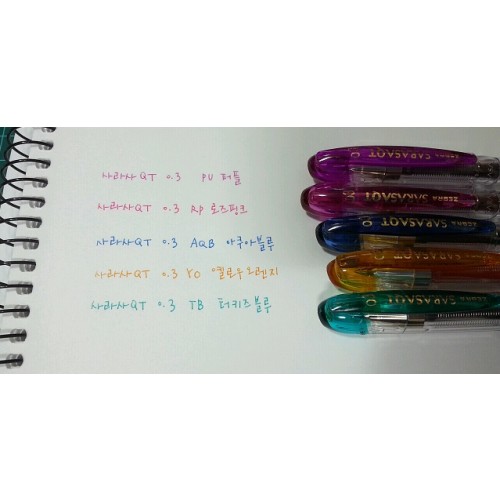 사라사QT 0.3 PU 퍼플
사라사QT 0.3 RP 로즈핑크
사라사QT 0.3 AQB 아쿠아블루
사라사QT 0.3 YO 옐로우오렌지
사라사QT 0.3 TB 터키즈블루
ZEBRA SARASAQT
ZEBRA SARASAQT
ZEBRA SARASAQT
ZEBRA SARASAQT
ZEBRA SARASAQT